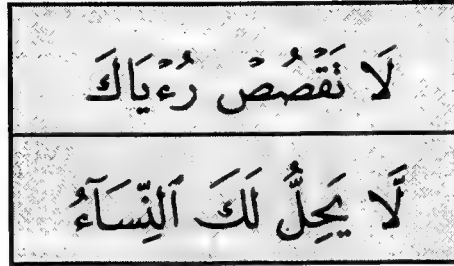 لَا تَقْصُصْ رُءْيَاكَ
لَّا يَحِلُّ لَكَ ٱلنِّسَآءُ